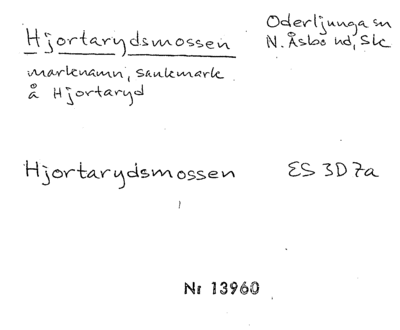 Hjortarydsmossen
Oderljunga sn
N. Åsbo hd, Sk
marknamn, sankmark
å Hjortaryd
Hjortarydsmossen
ES 3D7a
Nr 13960